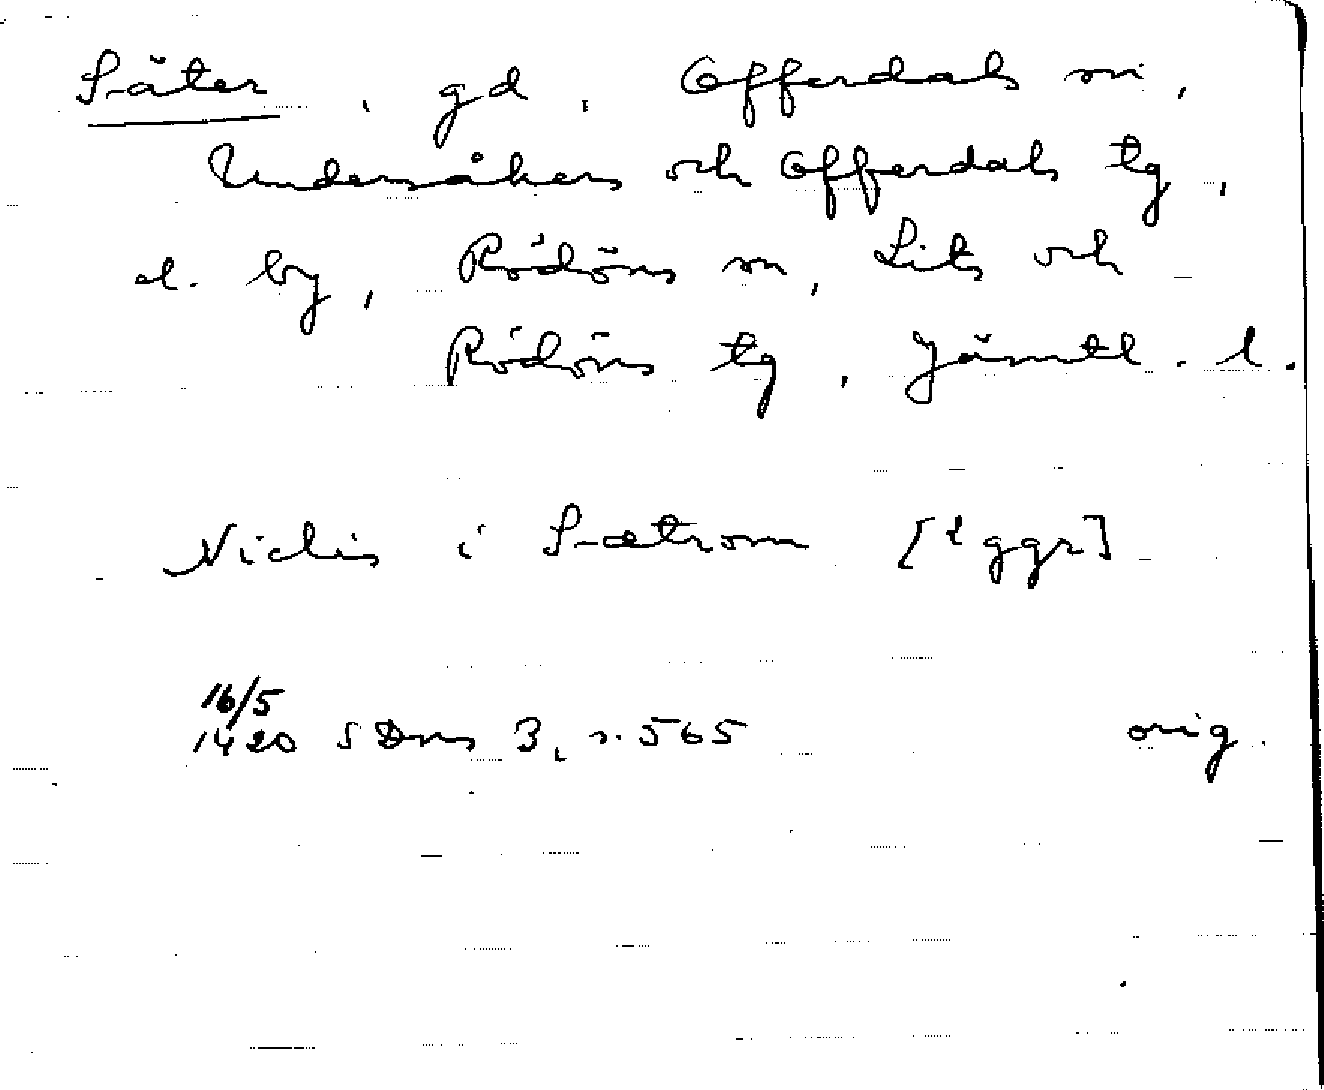 Säter, gd, Offerdals sn,
Undersåkers och Offerdals tg,
el. by, Rödöns sn, Lits och
Rödöns tg, Jämtl. l.
Niclis i Sætrom [2 ggr]
16/5
1420 SDns 3, s. 565 orig.